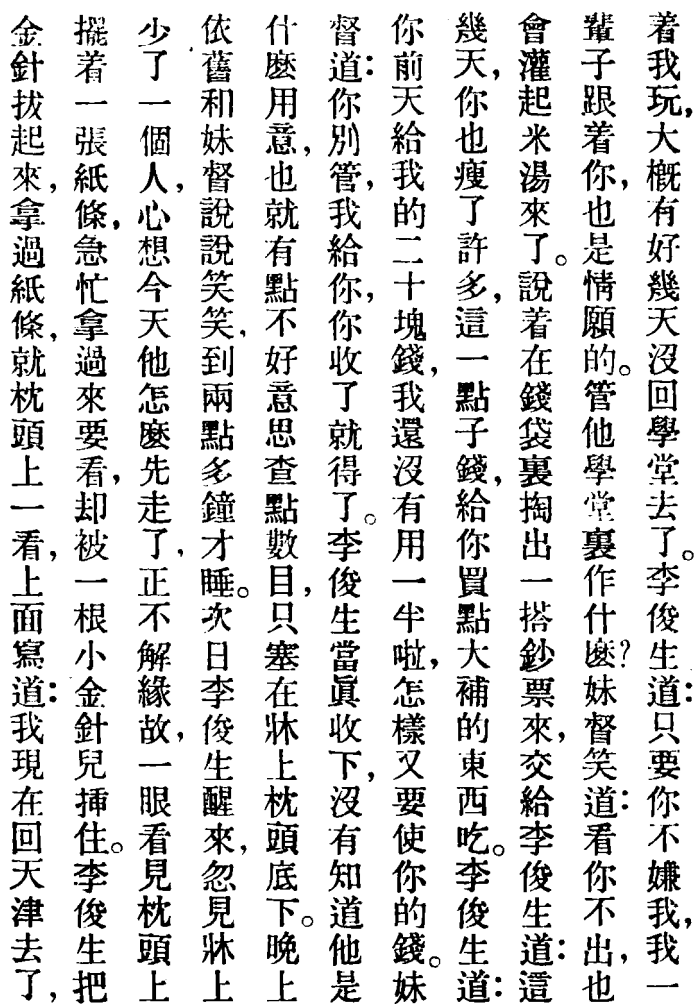 着我玩，大槪有好幾天沒回學堂去了。李俊生道：只要你不嫌我，我一
輩子跟着你，也是情願的。管他學堂裏作什麽？妹督笑道：看你不出，也
會灌起米湯來了。說着在錢袋裏掏出一搭鈔票來，交給李俊生道：這
幾天，你也瘦了許多，這一點子錢，給你買點大補的東西吃。李俊生道：
你前天給我的二十塊錢，我還沒有用一半啦，怎樣又要使你的錢。妹
督道：你別管，我給你，你收了就得了。李俊生當眞收下，沒有知道他是
什麽用意，也就有點不好意思查點數目，只塞在牀上枕頭底下。晚上
依舊和妹督說說笑笑，到兩點多鐘才睡。次日李俊生醒來，忽見牀上
少了一個人，心想今天他怎麽先走了，正不解緣故，一眼看見枕頭上
擺着一張紙條，急忙拿過來要看，却被一根小金針兒揷住。李俊生把
金針拔起來，拿過紙條，就枕頭上一看，上面寫道：我現在回天津去了，